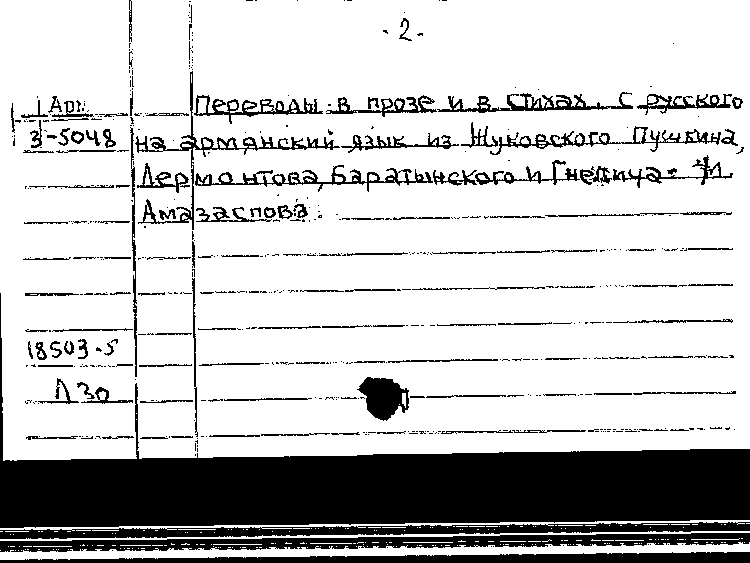 - 2 -
Арм. Переводы в прозе и в стихах. с русского
3-5048 на армянский язык из Жуковского Пушкина,
Лермонтова, Баратынского и Гнедича.
Амазаспова.
18503-5
Л 30